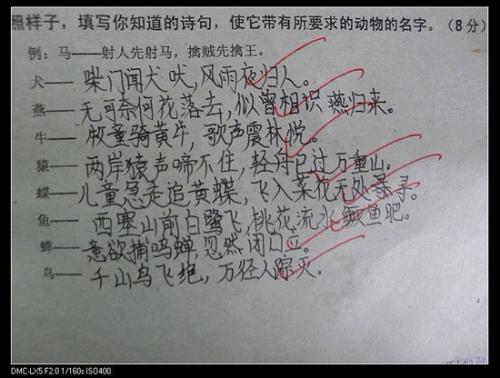 照样子，填写你知道的诗句，使它带有所要求的动物的名字。（8分）
例：马——射人先射马，擒贼先擒王。
犬——柴门闻犬吠，风雨夜归人。
燕——无可奈何花落去，似曾相识燕归来。
牛——牧童骑黄牛，歌声震林悦。
猿——两岸猿声啼不住，轻舟已过万重山。
蝶——儿童急走追黄蝶，飞入菜花无处寻。
鱼——西塞山前白鹭飞，桃花流水鳜鱼肥。
蝉——意欲捕鸣蝉，忽然闭口立。
鸟——千山鸟飞绝，万径人踪灭。
DMC-LX5 F2.0 1/160s ISO400